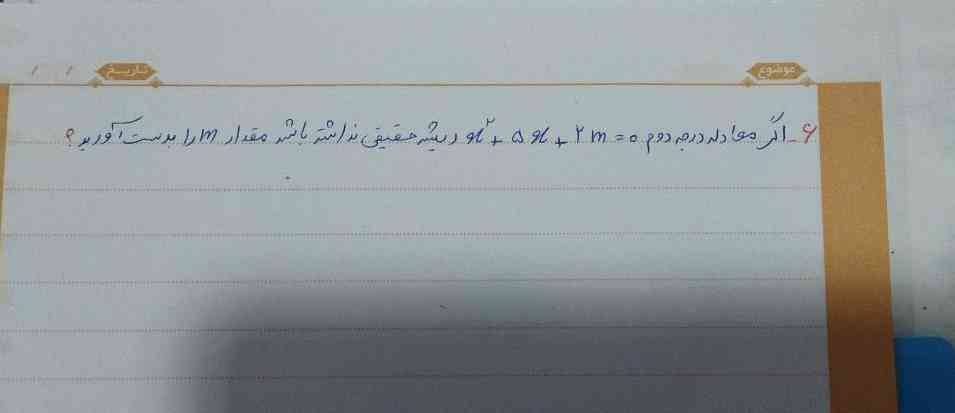 موضوع
تاریخ / /
۶- اگر معادله درجه دوم x²+۵x+۲m=۰ ریشه حقیقی نداشته باشد مقدار m را بدست آورید؟